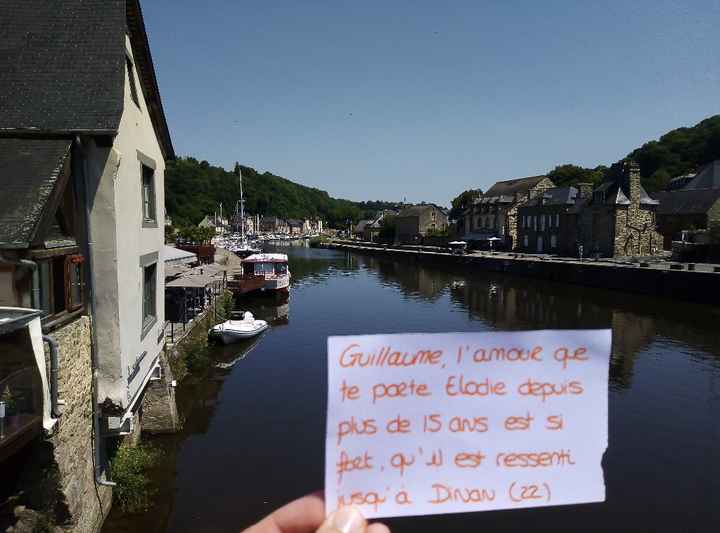 Guillaume, l'amour que
te porte Elodie depuis
plus de 15 ans est si
fort, qu'il est ressenti
jusqu'à Dinan (22)